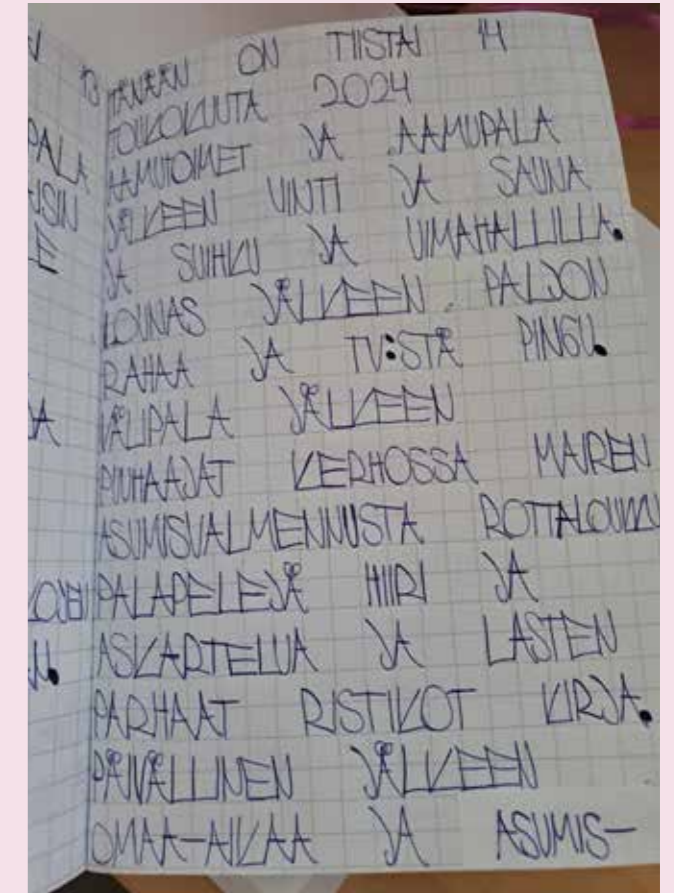 TÄNÄÄN ON TIISTAI 14
TOUKOKUUTA 2024
AAMUTOIMET JA AAMUPALA
JÄLKEEN UINTI JA SAUNA
JA SUIHKU JA UIMAHALLILLA.
LOUNAS JÄLKEEN PALJON
RAHAA JA TV:STÄ PINGU.
VÄLIPALA JÄLKEEN
PUUHAAJAT KERHOSSA MAIREN
ASUMISVALMENNUSTA
PALAPELEJÄ HIIRI JA
ASKARTELUA JA LASTEN
PARHAAT RISTIKOT KIRJA.
PÄIVÄLLINEN JÄLKEEN
OMAA-AIKAA JA ASUMIS-